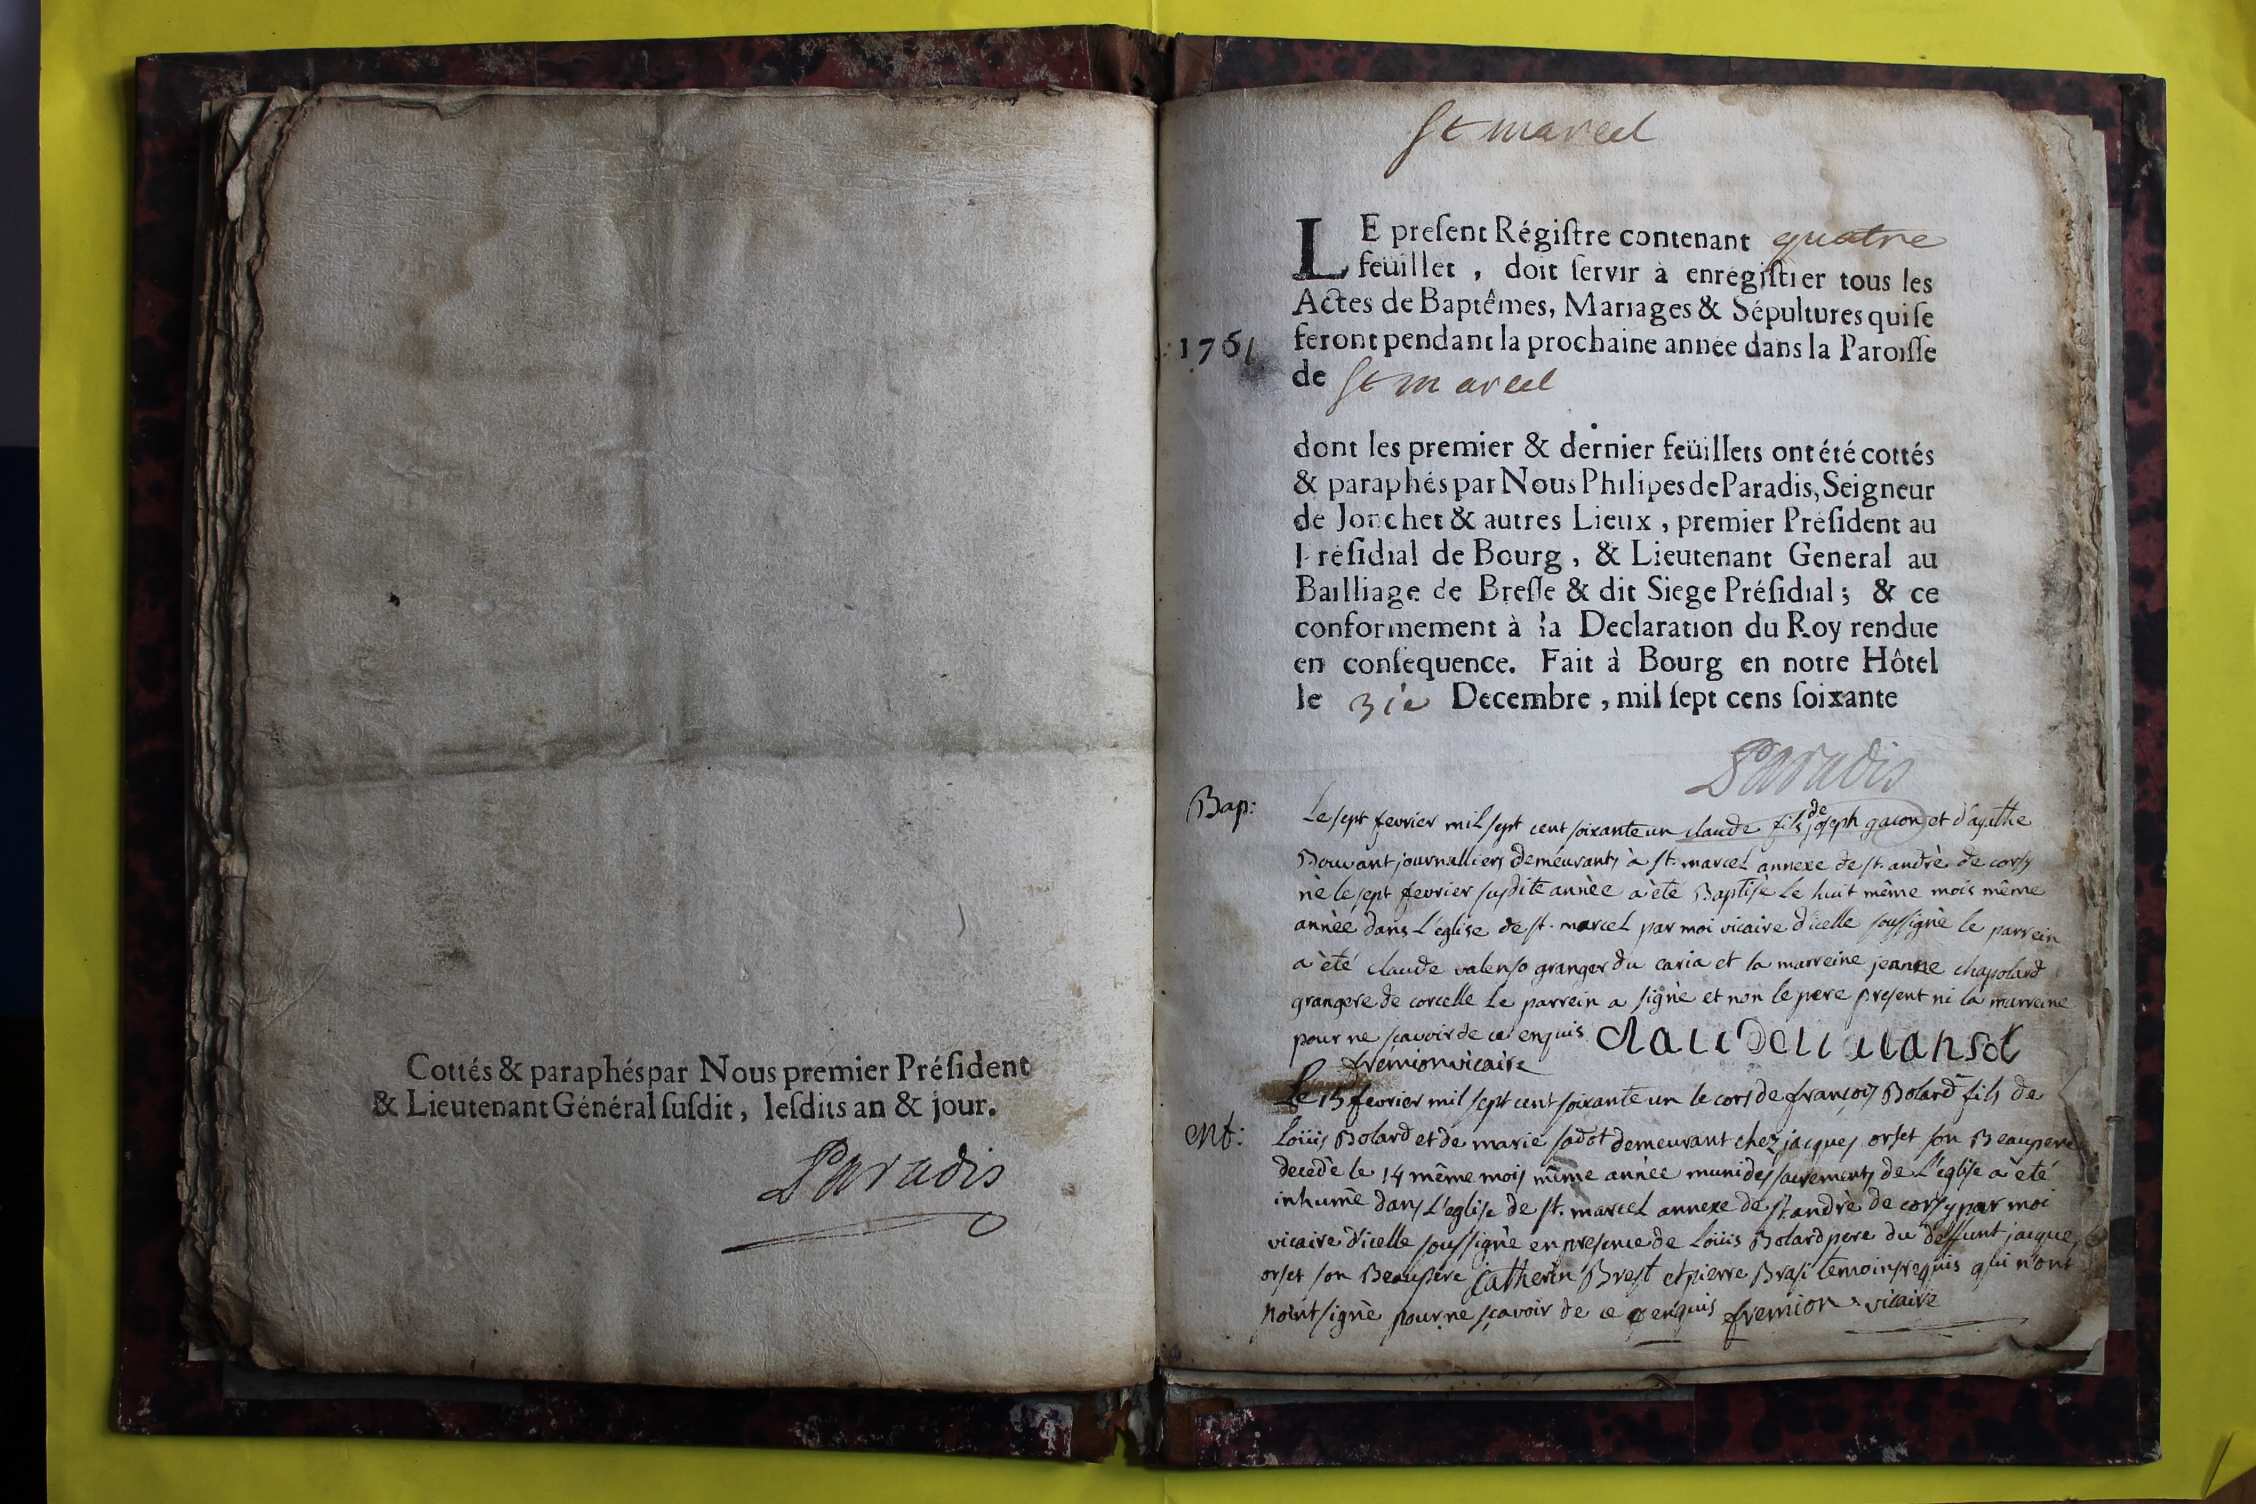 Cottés & paraphés par Nous premier Préſident
& Lieutenant Général ſuſdit, leſdits an & jour.
Paradis
St marcel
LE preſent Régiſtre contenant quatre
feüillet, doit ſervir à enrégiſtrer tous les
Actes de Baptêmes, Mariages & Sépultures qui ſe
1761 feront pendant la prochaine année dans la Paroiſſe
de St marcel
dont les premier & dernier feüillets ont été cottés
& paraphés par Nous Philipes de Paradis, Seigneur
de Jonchet & autres Lieux, premier Préſident au
Préſidial de Bourg, & Lieutenant General au
Bailliage de Breſſe & dit Siege Préſidial; & ce
conformement à la Declaration du Roy rendue
en conſequence. Fait à Bourg en notre Hôtel
le 31e Decembre, mil ſept cens ſoixante
Paradis
Bap: Le sept fevrier mil sept cent soixante un claude fils de joseph gacon et d'agathe
Bouvant journalliers demeurants à st. marcel annexe de st. andrè de corsy
nè le sept fevrier susdite annèe a ètè Baptisè le huit même mois même
annèe dans L'èglise de st. marcel par moi vicaire d'icelle soussignè le parrein
a ètè claude valenso granger du caria et la marreine jeanne chapolard
grangere de corcelle Le parrein a signè et non le pere present ni la marreine
pour ne sçavoir de ce enquis
fremion vicaire
Le 15 fevrier mil sept cent soixante un le cors de françois Bolard fils de
Mt: Loüis Bolard et de marie sadot demeurant chez jacques orset son Beaupere
decedè le 14 même mois même annèe muni des sacrements de L'eglise a ètè
inhumè dans L'eglise de st. marcel annexe de st. andrè de corsy par moi
vicaire d'icelle soussignè en presence de Loüis Bolard pere du deffunt jacques
orset son Beaupere Catherin Brest et pierre Brasi temoins requis qui n'ont
point signè pour ne sçavoir de ce enquis fremion vicaire